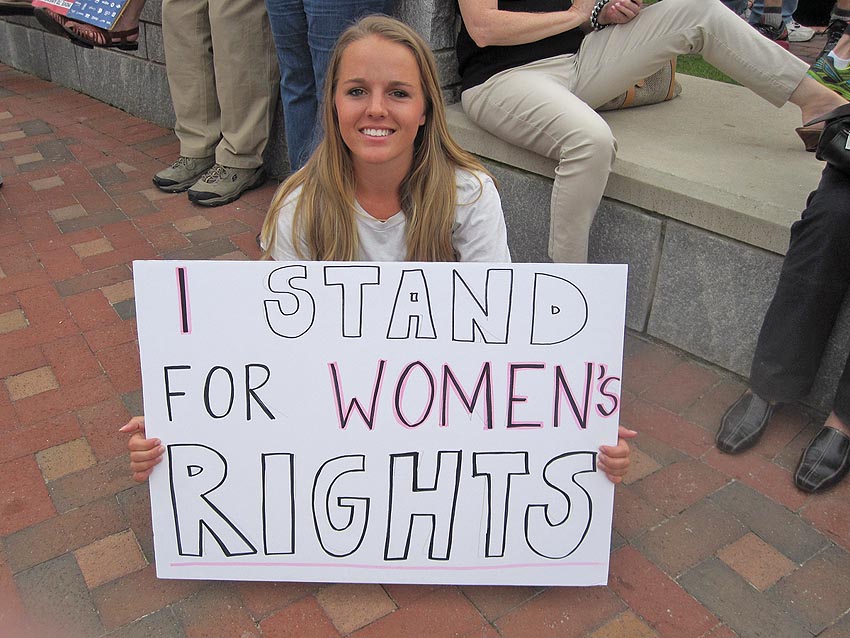 I STAND
FOR WOMEN'S
RIGHTS